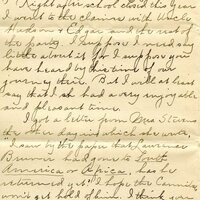 Right after school closed this year
I went to the claims with Uncle
Hudson & Edgar and the rest of
the party. I suppose I need say
little about it for I suppose you
have heard by this time of our
journey there. But I will at least
say that I had a very enjoyable
and pleasant time.
I got a letter from Mrs Stevens
the other day in which she wrote,
I saw by the paper that Lawrence
Bruner had gone to South
America or Africa, has he
returned yet? I hope the Cannibals
won't get hold of him. I thank you